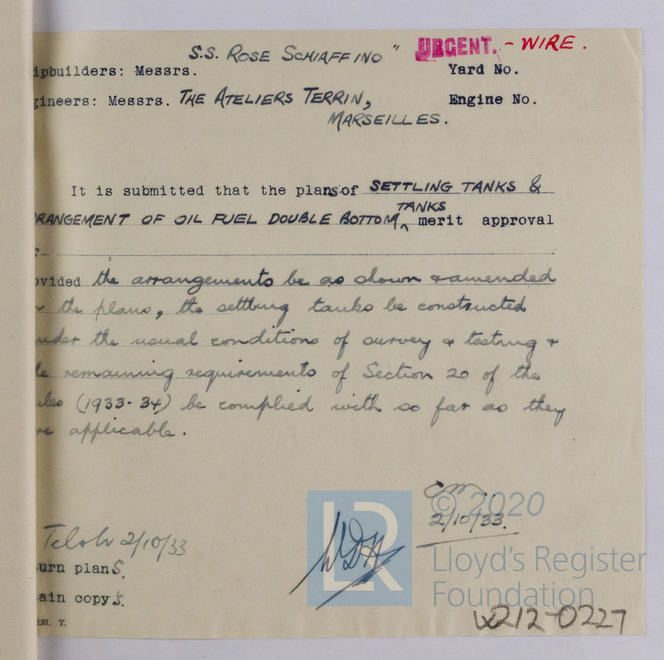 S.S. ROSE SCHIAFFINO " URGENT. - WIRE.
ipbuilders: Messrs. Yard No.
gineers: Messrs. THE ATELIERS TERRIN, Engine No.
MARSEILLES.
It is submitted that the plans of SETTLING TANKS &
TANKS
RANGEMENT OF OIL FUEL DOUBLE BOTTOM ^ merit approval
ovided the arrangements be as shown & amended
the plans, the settling tanks be constructed
nder the usual conditions of survey & testing &
he remaining requirements of Section 20 of the
ules (1933-34) be complied with so far as they
re applicable.
2/10/33.
2/10/33
urn plans.
ain copys.
T.
LR
© 2020
Lloyd's Register
Foundation
W212-0227